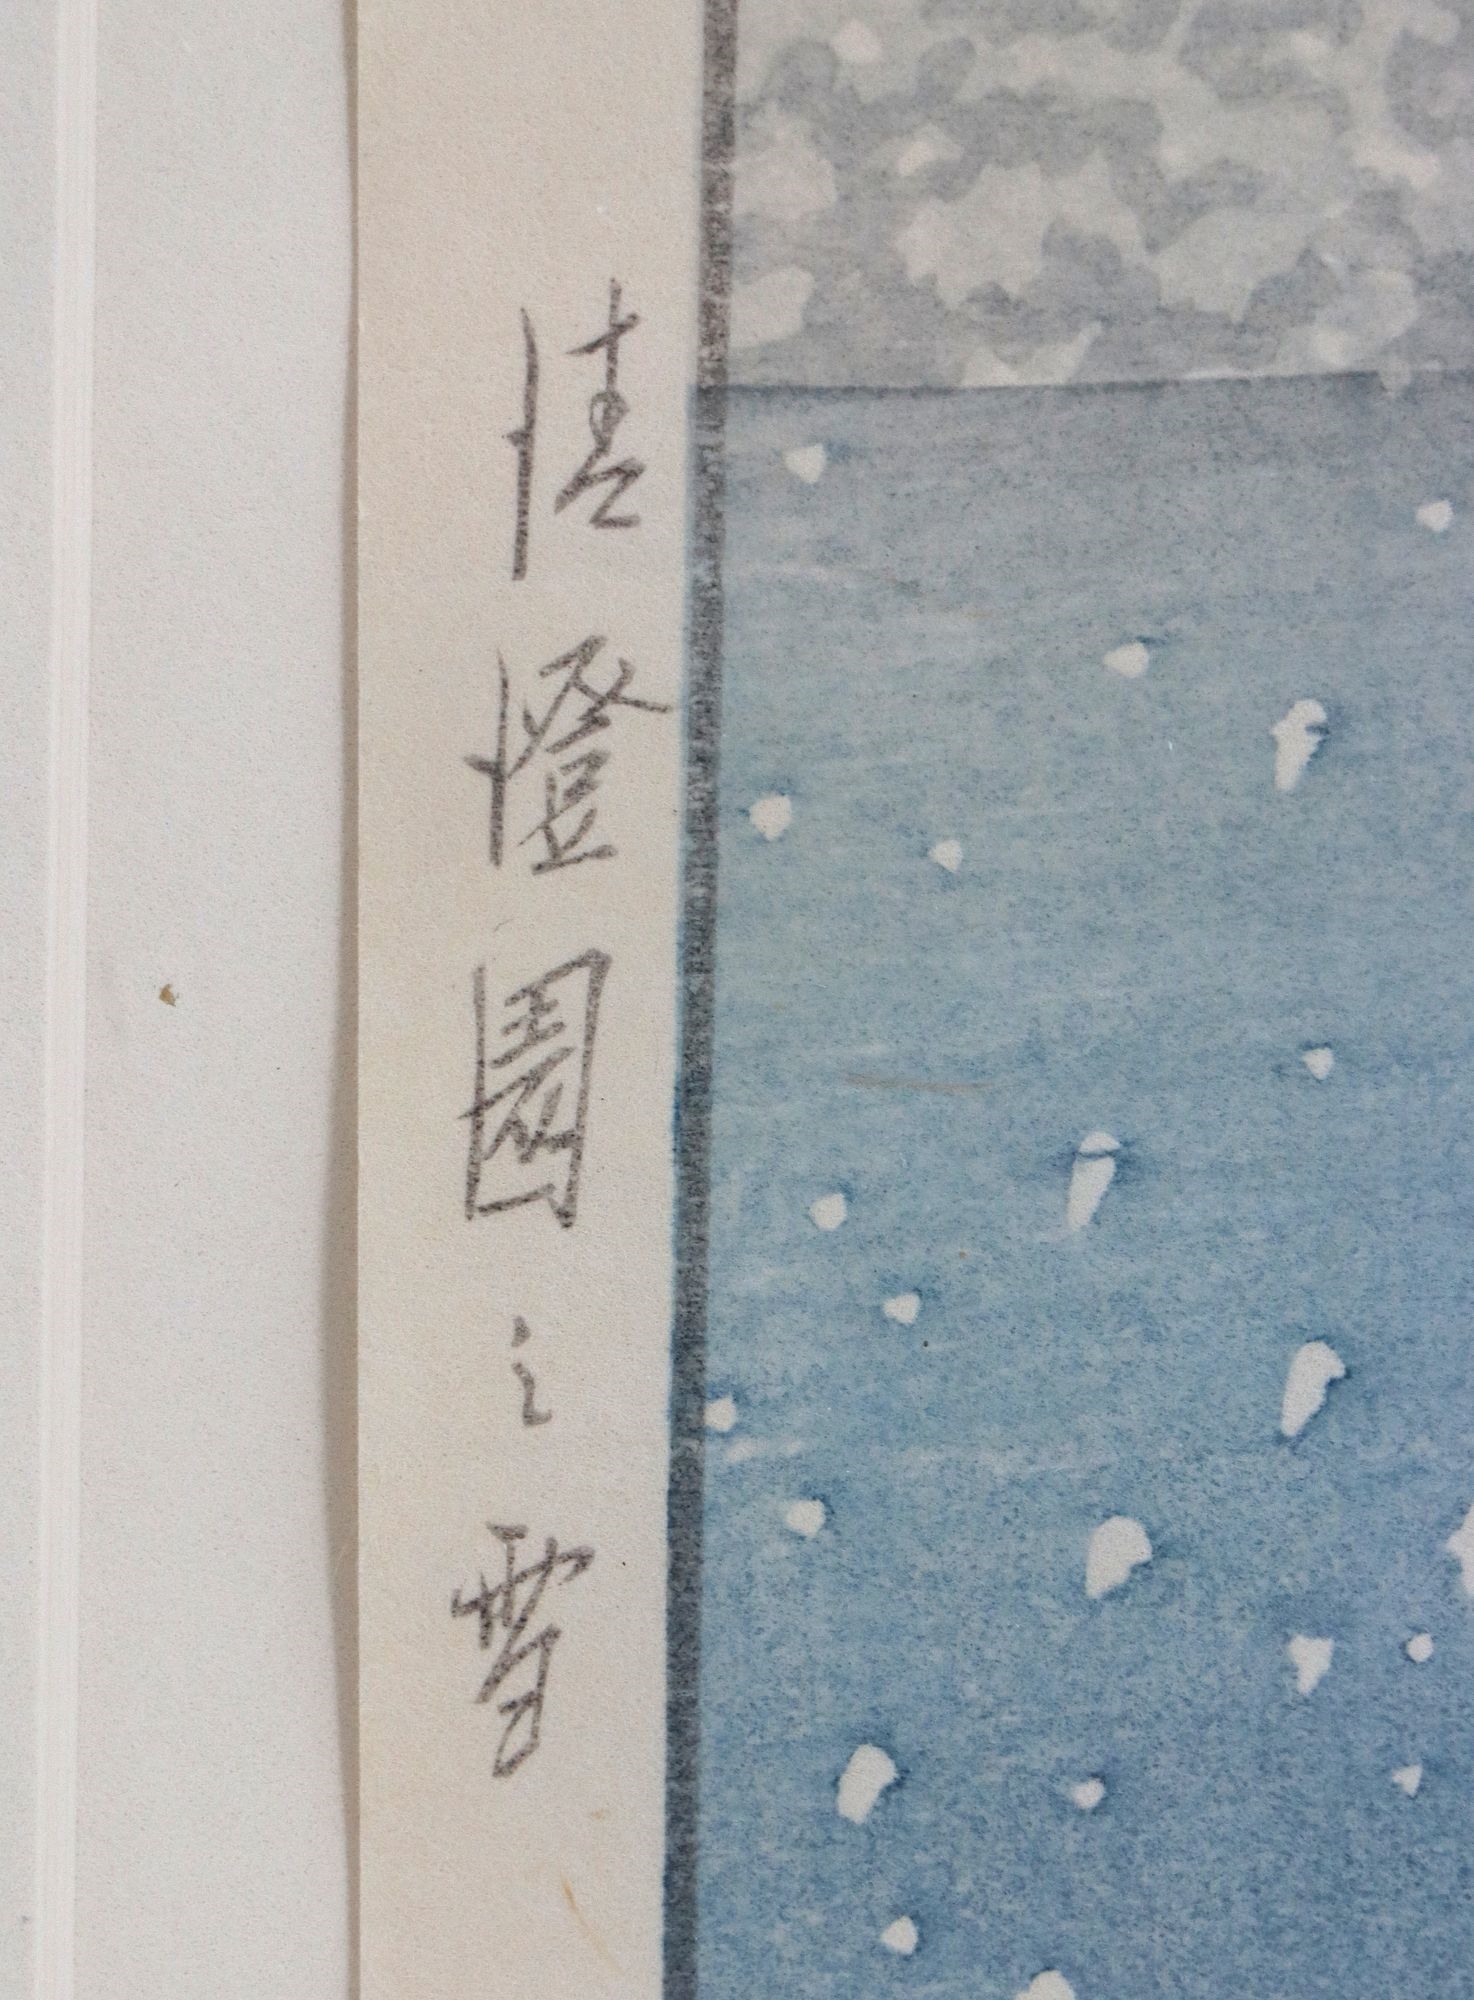 清澄園之雪